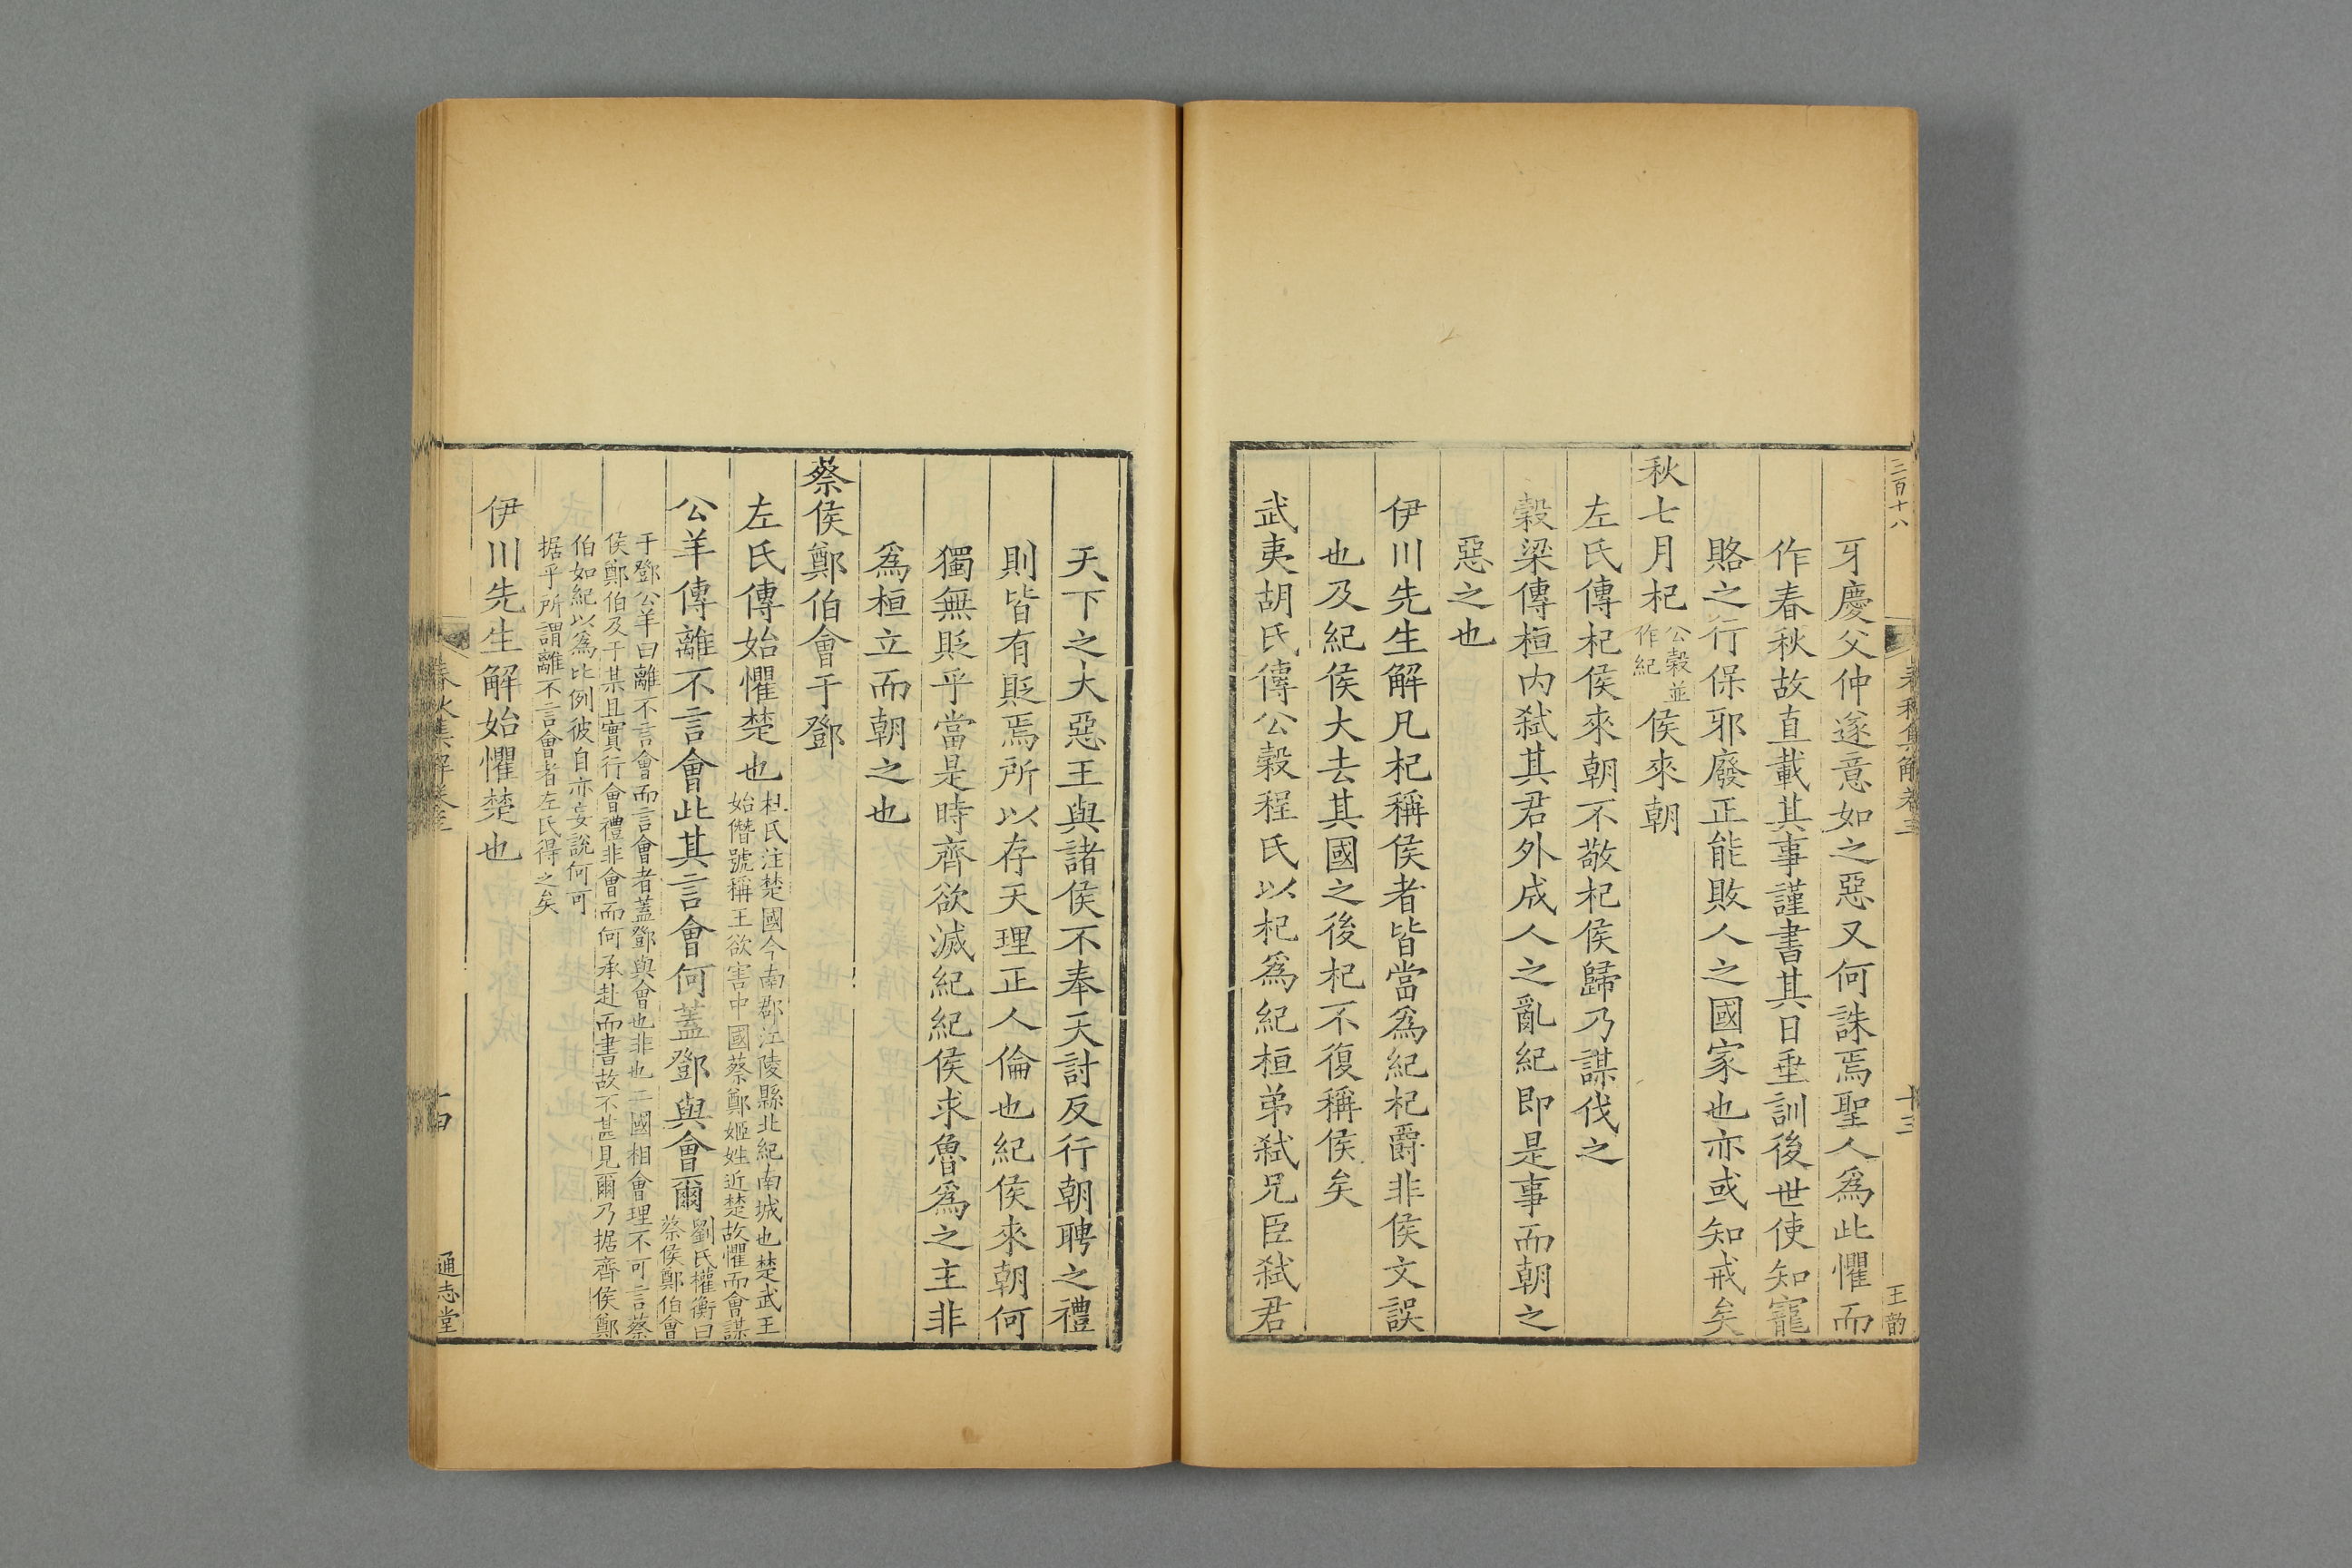 三百十八
春秋集解卷三
十三
王韵
牙慶父仲遂意如之惡又何誅焉聖人爲此懼而
作春秋故直載其事謹書其日垂訓後世使知寵
賂之行保邪廢正能敗人之國家也亦或知戒矣
秋七月杞公穀並作紀侯來朝
左氏傳杞侯來朝不敬杞侯歸乃謀伐之
穀梁傳桓內弑其君外成人之亂紀即是事而朝之
惡之也
伊川先生解凡杞稱侯者皆當爲紀杞爵非侯文誤
也及紀侯大去其國之後杞不復稱侯矣
武夷胡氏傳公穀程氏以杞爲紀桓弟弑兄臣弑君
天下之大惡王與諸侯不奉天討反行朝聘之禮
則皆有貶焉所以存天理正人倫也紀侯來朝何
獨無貶乎當是時齊欲滅紀紀侯求魯爲之主非
爲桓立而朝之也
蔡侯鄭伯會于鄧
左氏傳始懼楚也杜氏注楚國今南郡江陵縣北紀南城也楚武王始僭號稱王欲害中國蔡鄭姬姓近楚故懼而會謀
公羊傳離不言會此其言會何蓋鄧與會爾劉氏權衡曰蔡侯鄭伯會
于鄧公羊曰離不言會而言會者蓋鄧與會也非也二國相會理不可言蔡
侯鄭伯及于某且實行會禮非會而何承赴而書故不甚見爾乃据齊侯鄭
伯如紀以爲比例彼自亦妄說何可
据乎所謂離不言會者左氏得之矣
伊川先生解始懼楚也
春秋集解卷三
十四
通志堂